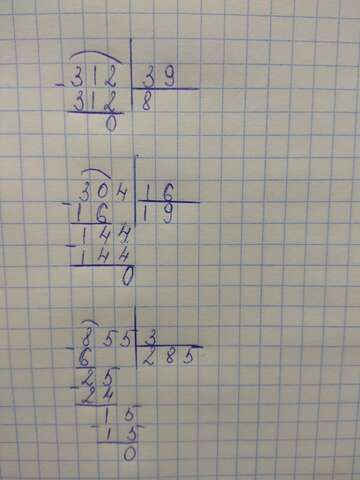 312 39
312 8
0
304 16
16 19
144
144
0
855 3
6 285
25
24
15
15
0